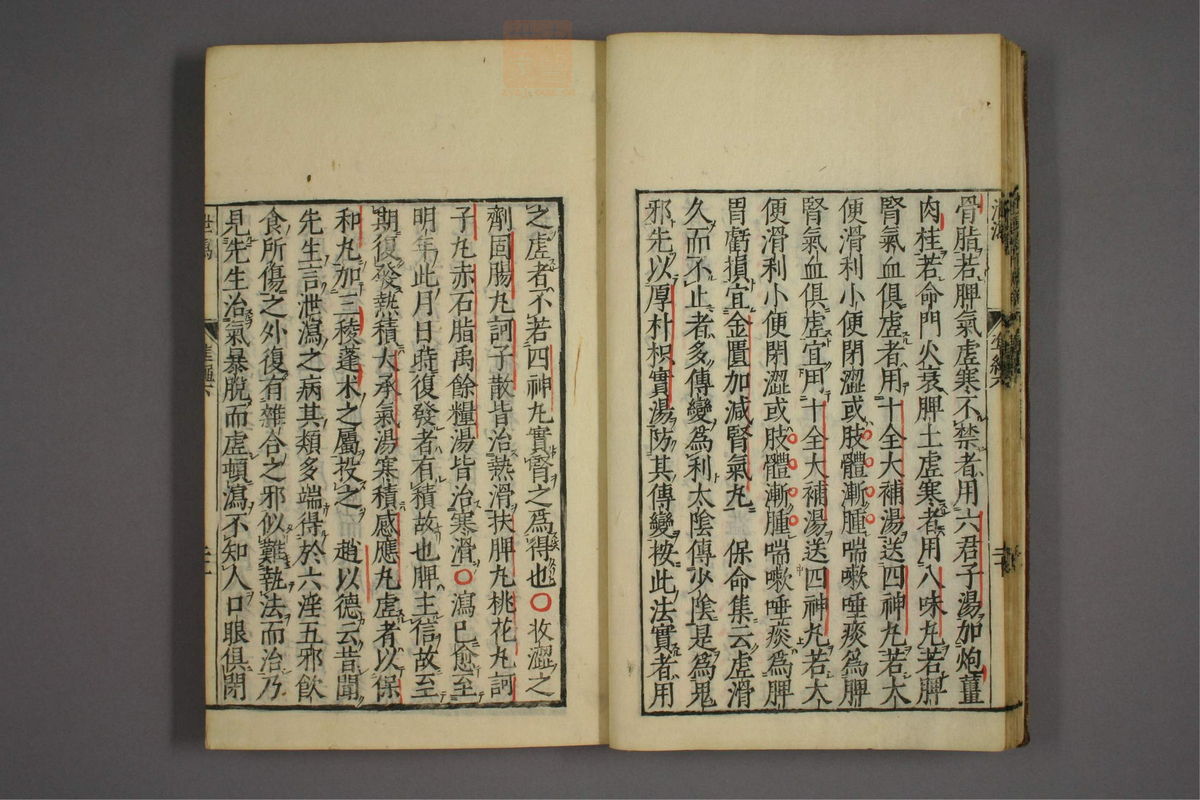 骨脂若脾氣虛寒不禁者用六君子湯加炮薑
肉桂若命門火衰脾土虛寒者用八味丸若脾
腎氣血俱虛者用十全大補湯送四神丸若大
便滑利小便閉澀或肢體漸腫喘嗽唾痰爲脾
腎氣血俱虛宜用十全大補湯送四神丸若大
便滑利小便閉澀或肢體漸腫喘嗽唾痰爲脾
胃虧損宜金匱加減腎氣丸 保命集云虛滑
久而不止者多傳變爲利太陰傳少陰是爲鬼
邪先以厚朴枳實湯防其傳變按此法實者用
之虛者不若四神丸實胃之爲得也○收澀之
劑固腸丸訶子散皆治熱滑扶脾丸桃花丸訶
子丸赤石脂禹餘糧湯皆治寒滑○瀉已愈至
明年此月日時復發者有積故也脾主信故至
期復發熱積大承氣湯寒積感應丸虛者以保
和丸加三稜蓬朮之屬投之 趙以德云昔聞
先生言泄瀉之病其類多端得於六淫五邪飲
食所傷之外復有雜合之邪似難執法而治乃
見先生治氣暴脫而虛頓瀉不知人口眼俱閉